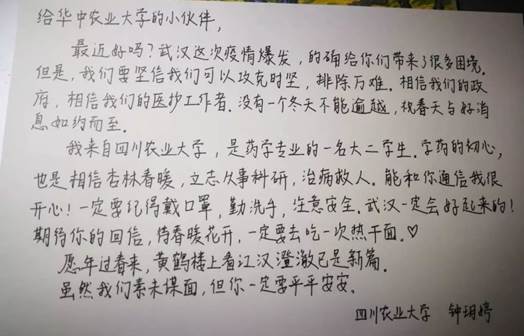 给华中农业大学的小伙伴，
最近好吗？武汉这次疫情爆发，的确给你们带来了很多困境。
但是，我们要坚信我们可以攻克时坚，排除万难。相信我们的政
府，相信我们的医护工作者。没有一个冬天不能逾越，祝春天与好消
息如约而至。
我来自四川农业大学，是药学专业的一名大二学生。学药的初心，
也是相信杏林春暖，立志从事科研，治病救人。能和你通信我很
开心！一定要记得戴口罩，勤洗手，注意安全。武汉一定会好起来的！
期待你的回信，待春暖花开，一定要去吃一次热干面。♡
愿年过春来，黄鹤楼上看江汉澄澈已是新篇。
虽然我们素未谋面，但你一定要平平安安。
四川农业大学 钟玥婷